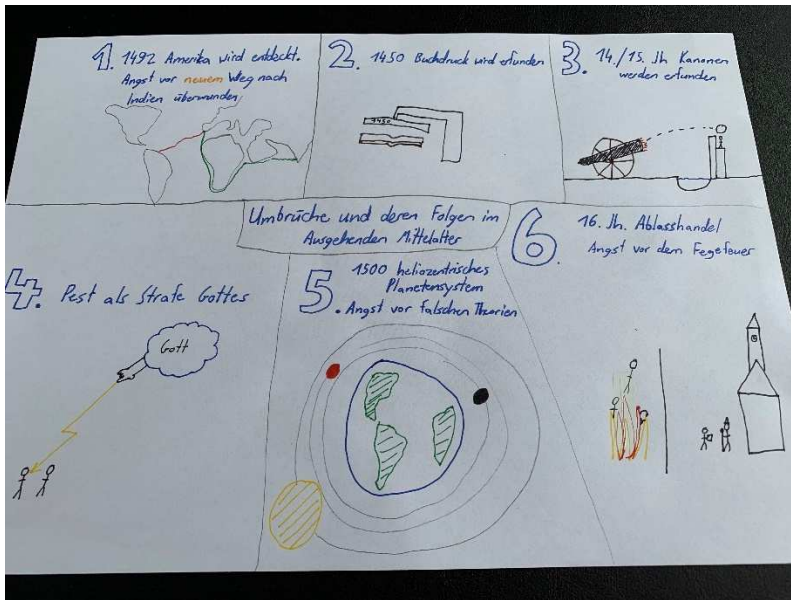 1. 1492 Amerika wird entdeckt.
Angst vor neuem Weg nach
Indien überwunden
2. 1450 Buchdruck wird erfunden
1450
3. 14./15. Jh Kanonen
werden erfunden
Umbrüche und deren Folgen im
Ausgehenden Mittelalter
4. Pest als Strafe Gottes
Gott
5. 1500 heliozentrisches
Planetensystem
. Angst vor falschen Theorien
6. 16. Jh. Ablasshandel
Angst vor dem Fegefeuer